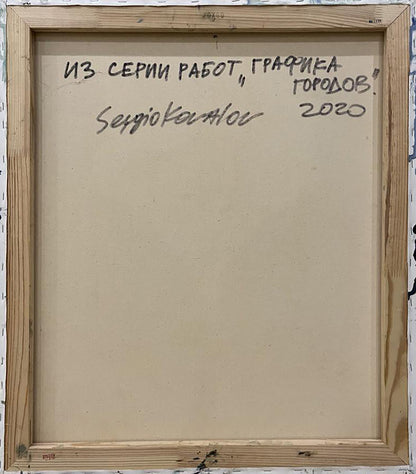 ИЗ СЕРИИ РАБОТ „ГРАФИКА
ГОРОДОВ".
SergioKovalov 2020